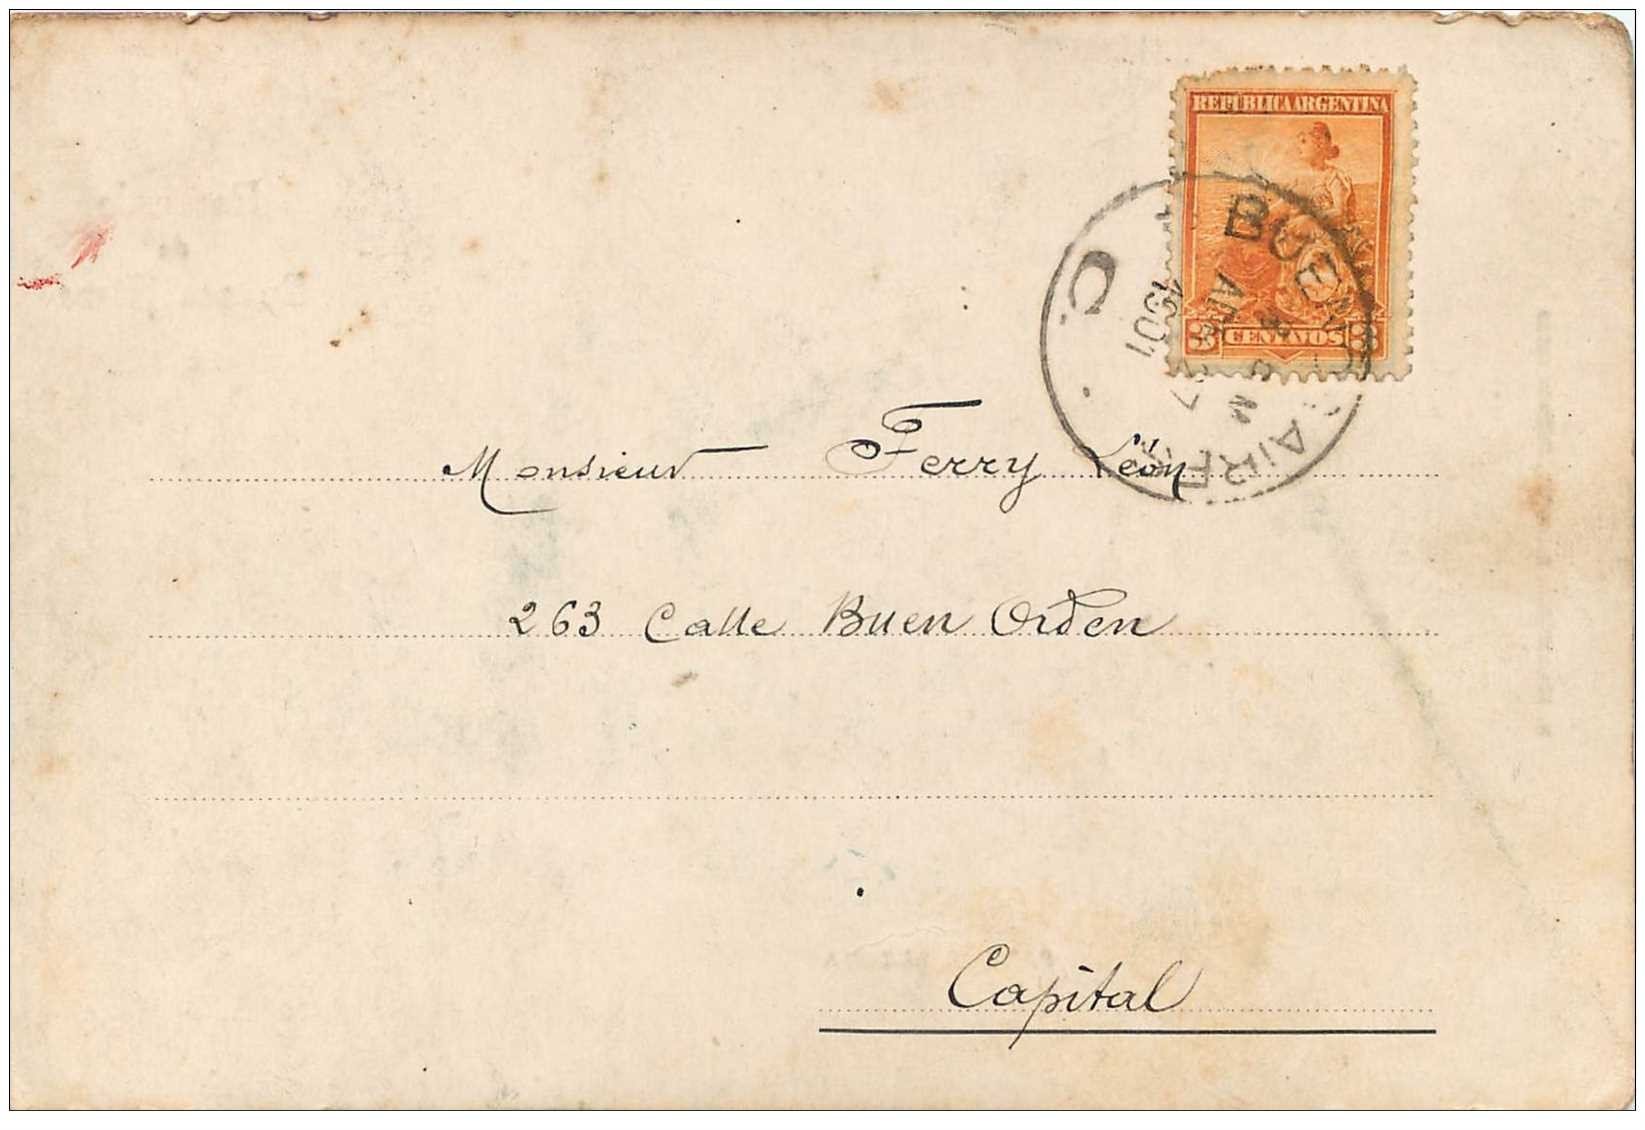 REPÚBLICA ARGENTINA
3 CENTAVOS 3
BUENOS AIRES
1901
C.
Monsieur Ferry Léon
263 Calle Buen Orden
Capital